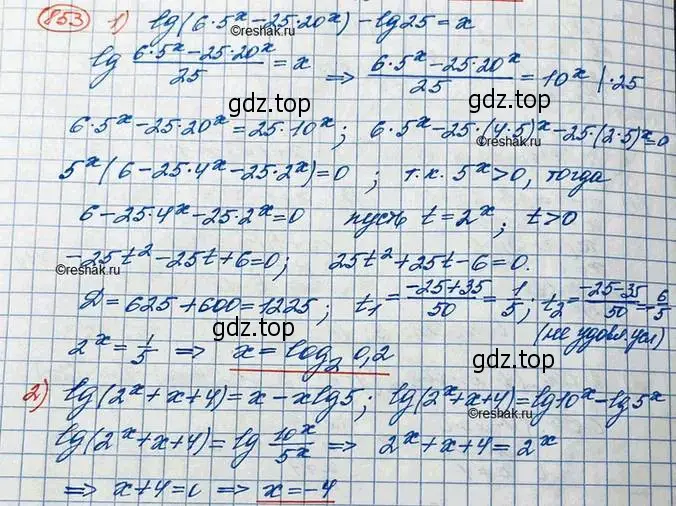 853 1) lg(6·5ˣ-25·20ˣ)-lg25=x
©reshak.ru
lg (6·5ˣ-25·20ˣ)/25 = x ⇒ (6·5ˣ-25·20ˣ)/25 = 10ˣ |·25
gdz.top gdz.top
6·5ˣ-25·20ˣ=25·10ˣ; 6·5ˣ-25·(4·5)ˣ-25(2·5)ˣ=0
©reshak.ru
5ˣ(6-25·4ˣ-25·2ˣ)=0 ; т.к. 5ˣ>0, тогда
gdz.top
6-25·4ˣ-25·2ˣ=0 пусть t=2ˣ; t>0
©reshak.ru
-25t²-25t+6=0; 25t²+25t-6=0.
©reshak.ru
Д=625+600=1225; t₁=(-25+35)/50=1/5; t₂=(-25-35)/50=-6/5
gdz.top gdz.top
(не удовл. усл)
2ˣ=1/5 ⇒ x=log₂0,2
gdz.top
2) lg(2ˣ+x+4)=x-xlg5; lg(2ˣ+x+4)=lg10ˣ-lg5ˣ
©reshak.ru
lg(2ˣ+x+4)=lg 10ˣ/5ˣ ⇒ 2ˣ+x+4=2ˣ
gdz.top
⇒ x+4=0 ⇒ x=-4